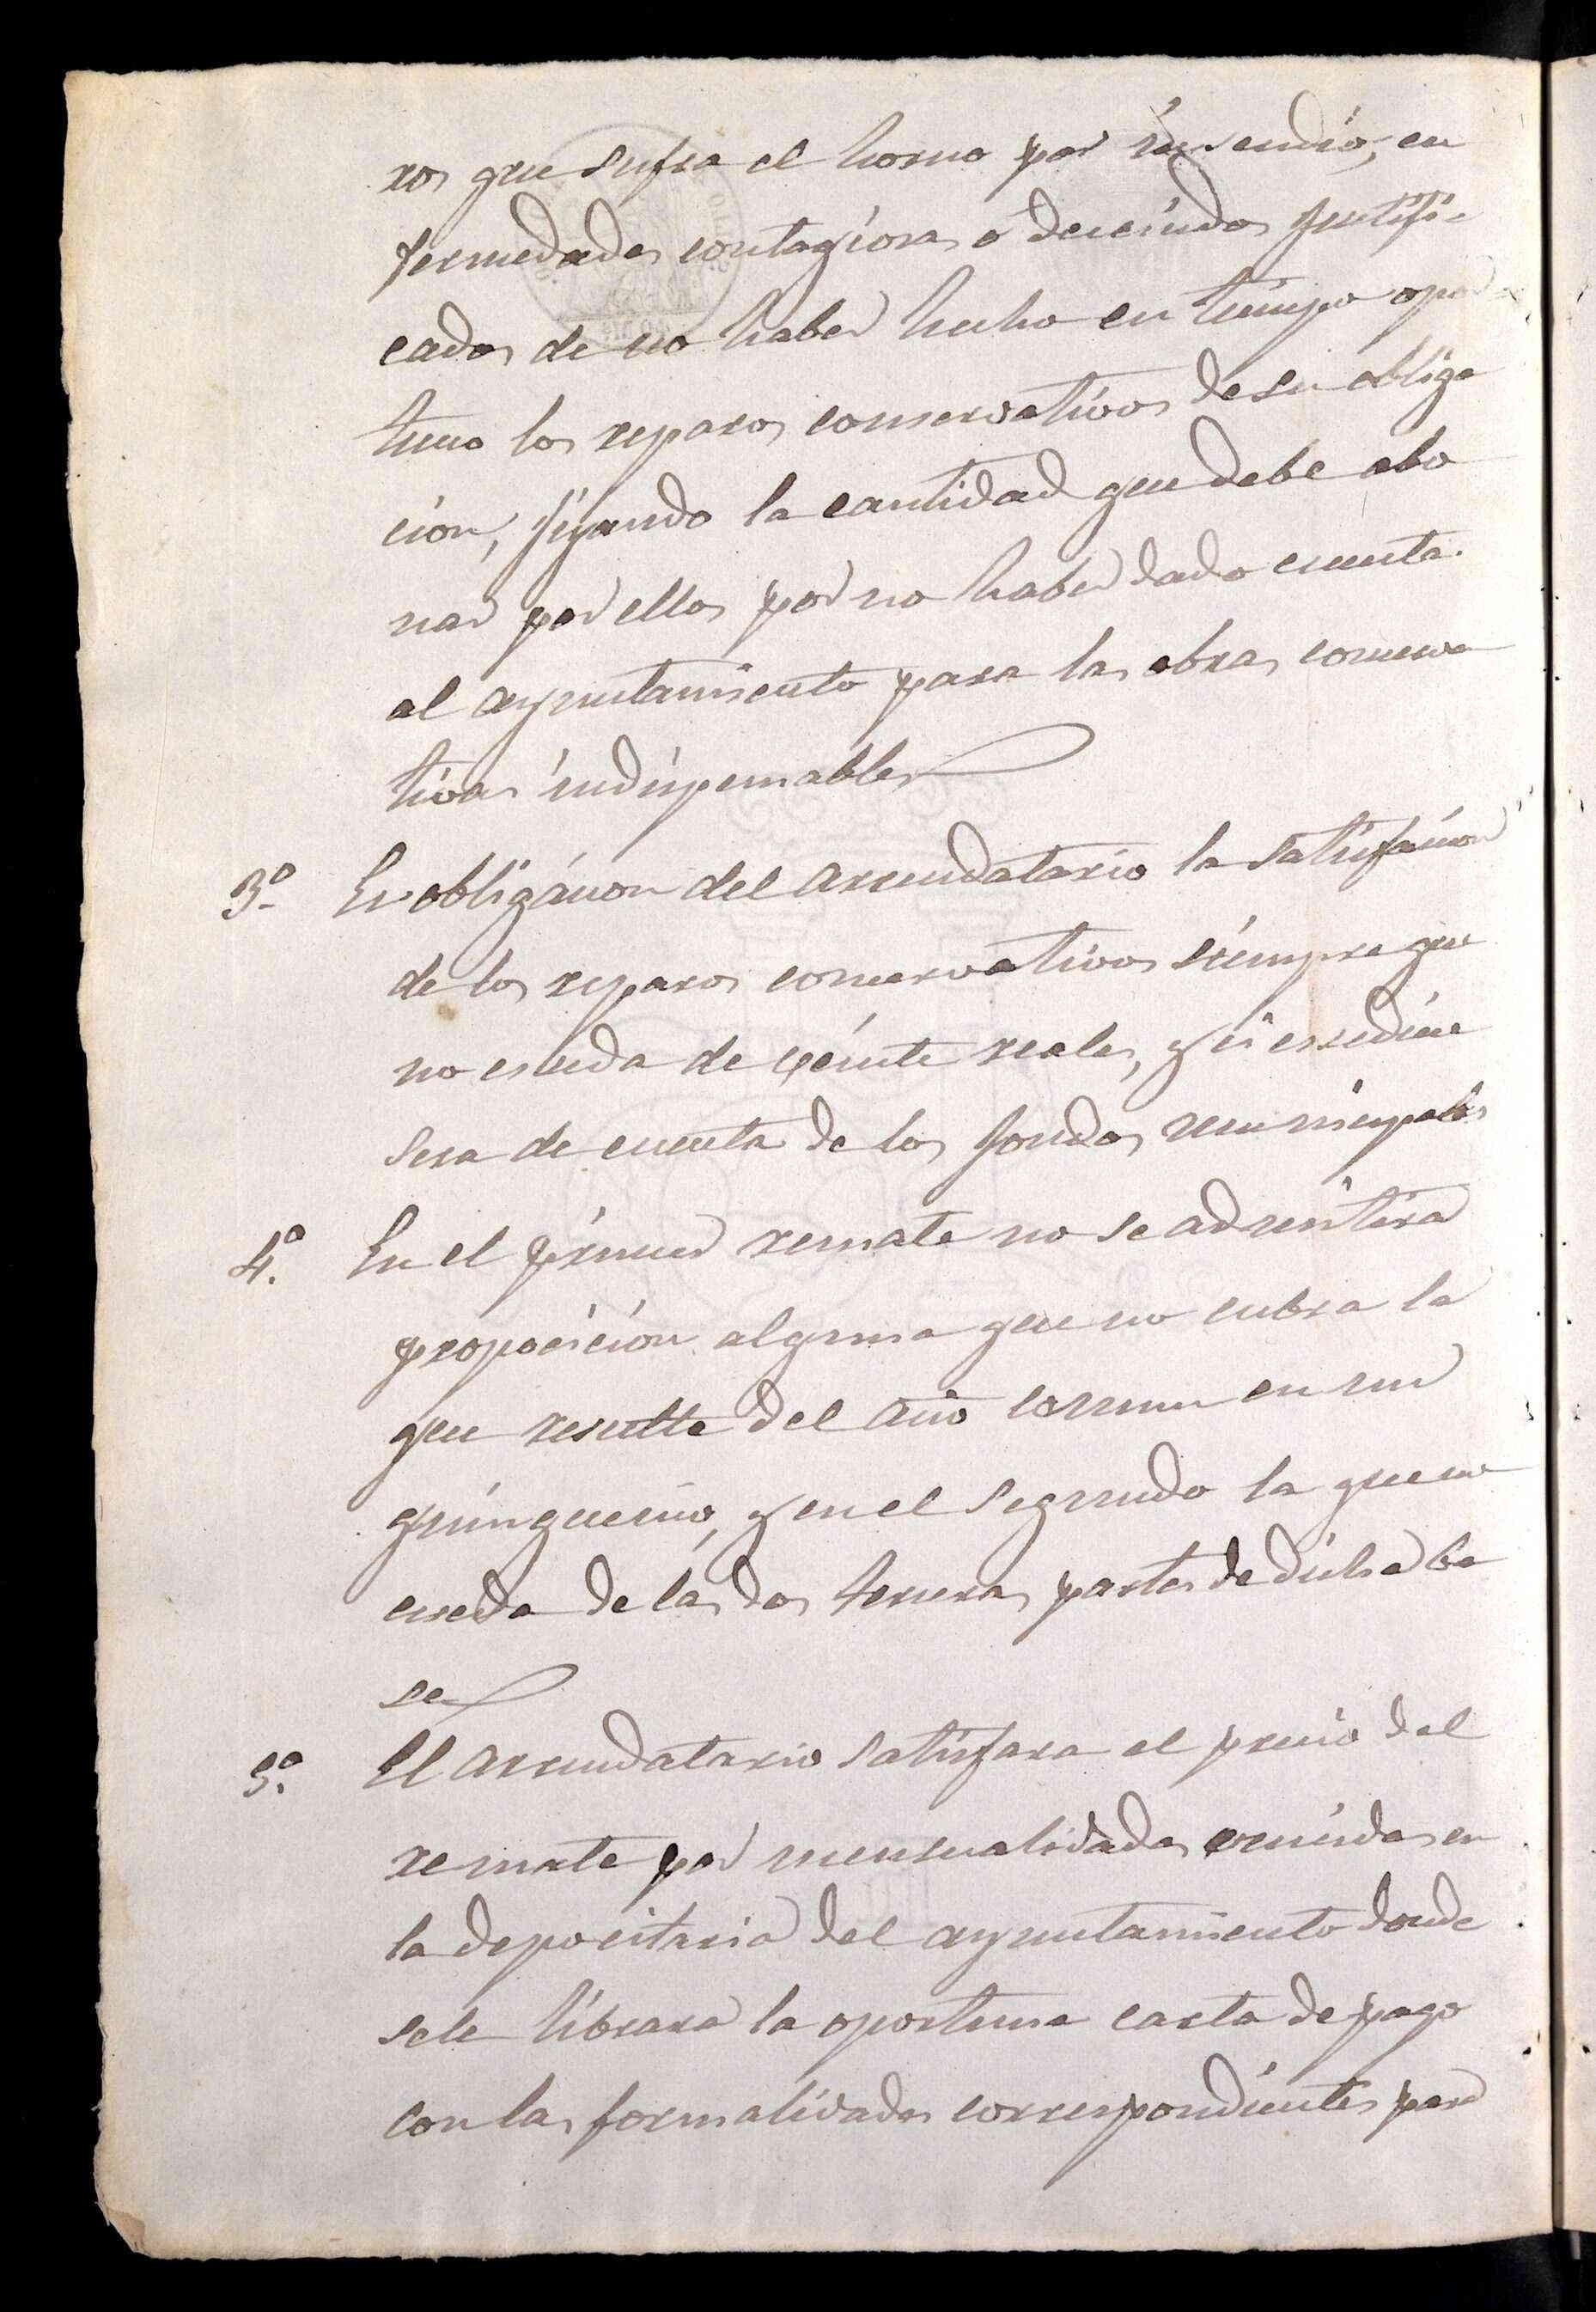 ros que sufra el horno por insendio, en
fermedades contagiosas o descuidos justifi-
cados de no haber hecho en tiempo opor
tuno los reparos conservativos de su obliga
cion, fijando la cantidad que debe abo
nar por ellos por no haber dado cuenta
al ayuntamiento para las obras conserva
tivas indispensables
3º Es obligacion del arrendatario la satisfacion
de los reparos conservativos siempre que
no esceda de veinte reales, y si escediere
sera de cuenta de los fondos municipales
4º En el primer remate no se admitira
proposicion alguna que no cubra la
que resulte del año comun en un
quinquenio, y en el segundo la que no
esceda de las dos terceras partes de dicha ba
se
5º El arrendatario satisfara el precio del
remate por mensualidades vencidas en
la depocitaria del ayuntamiento donde
se le librara la oportuna carta de pago
con las formalidades correspondientes para